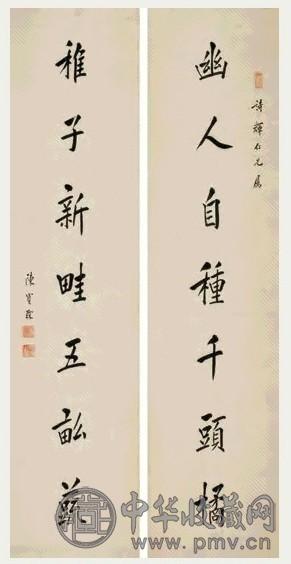 詩輝仁兄屬
幽人自種千頭橘
稚子新畦五畝蔬
陳寶琛
中华收藏网
www.pmv.cn